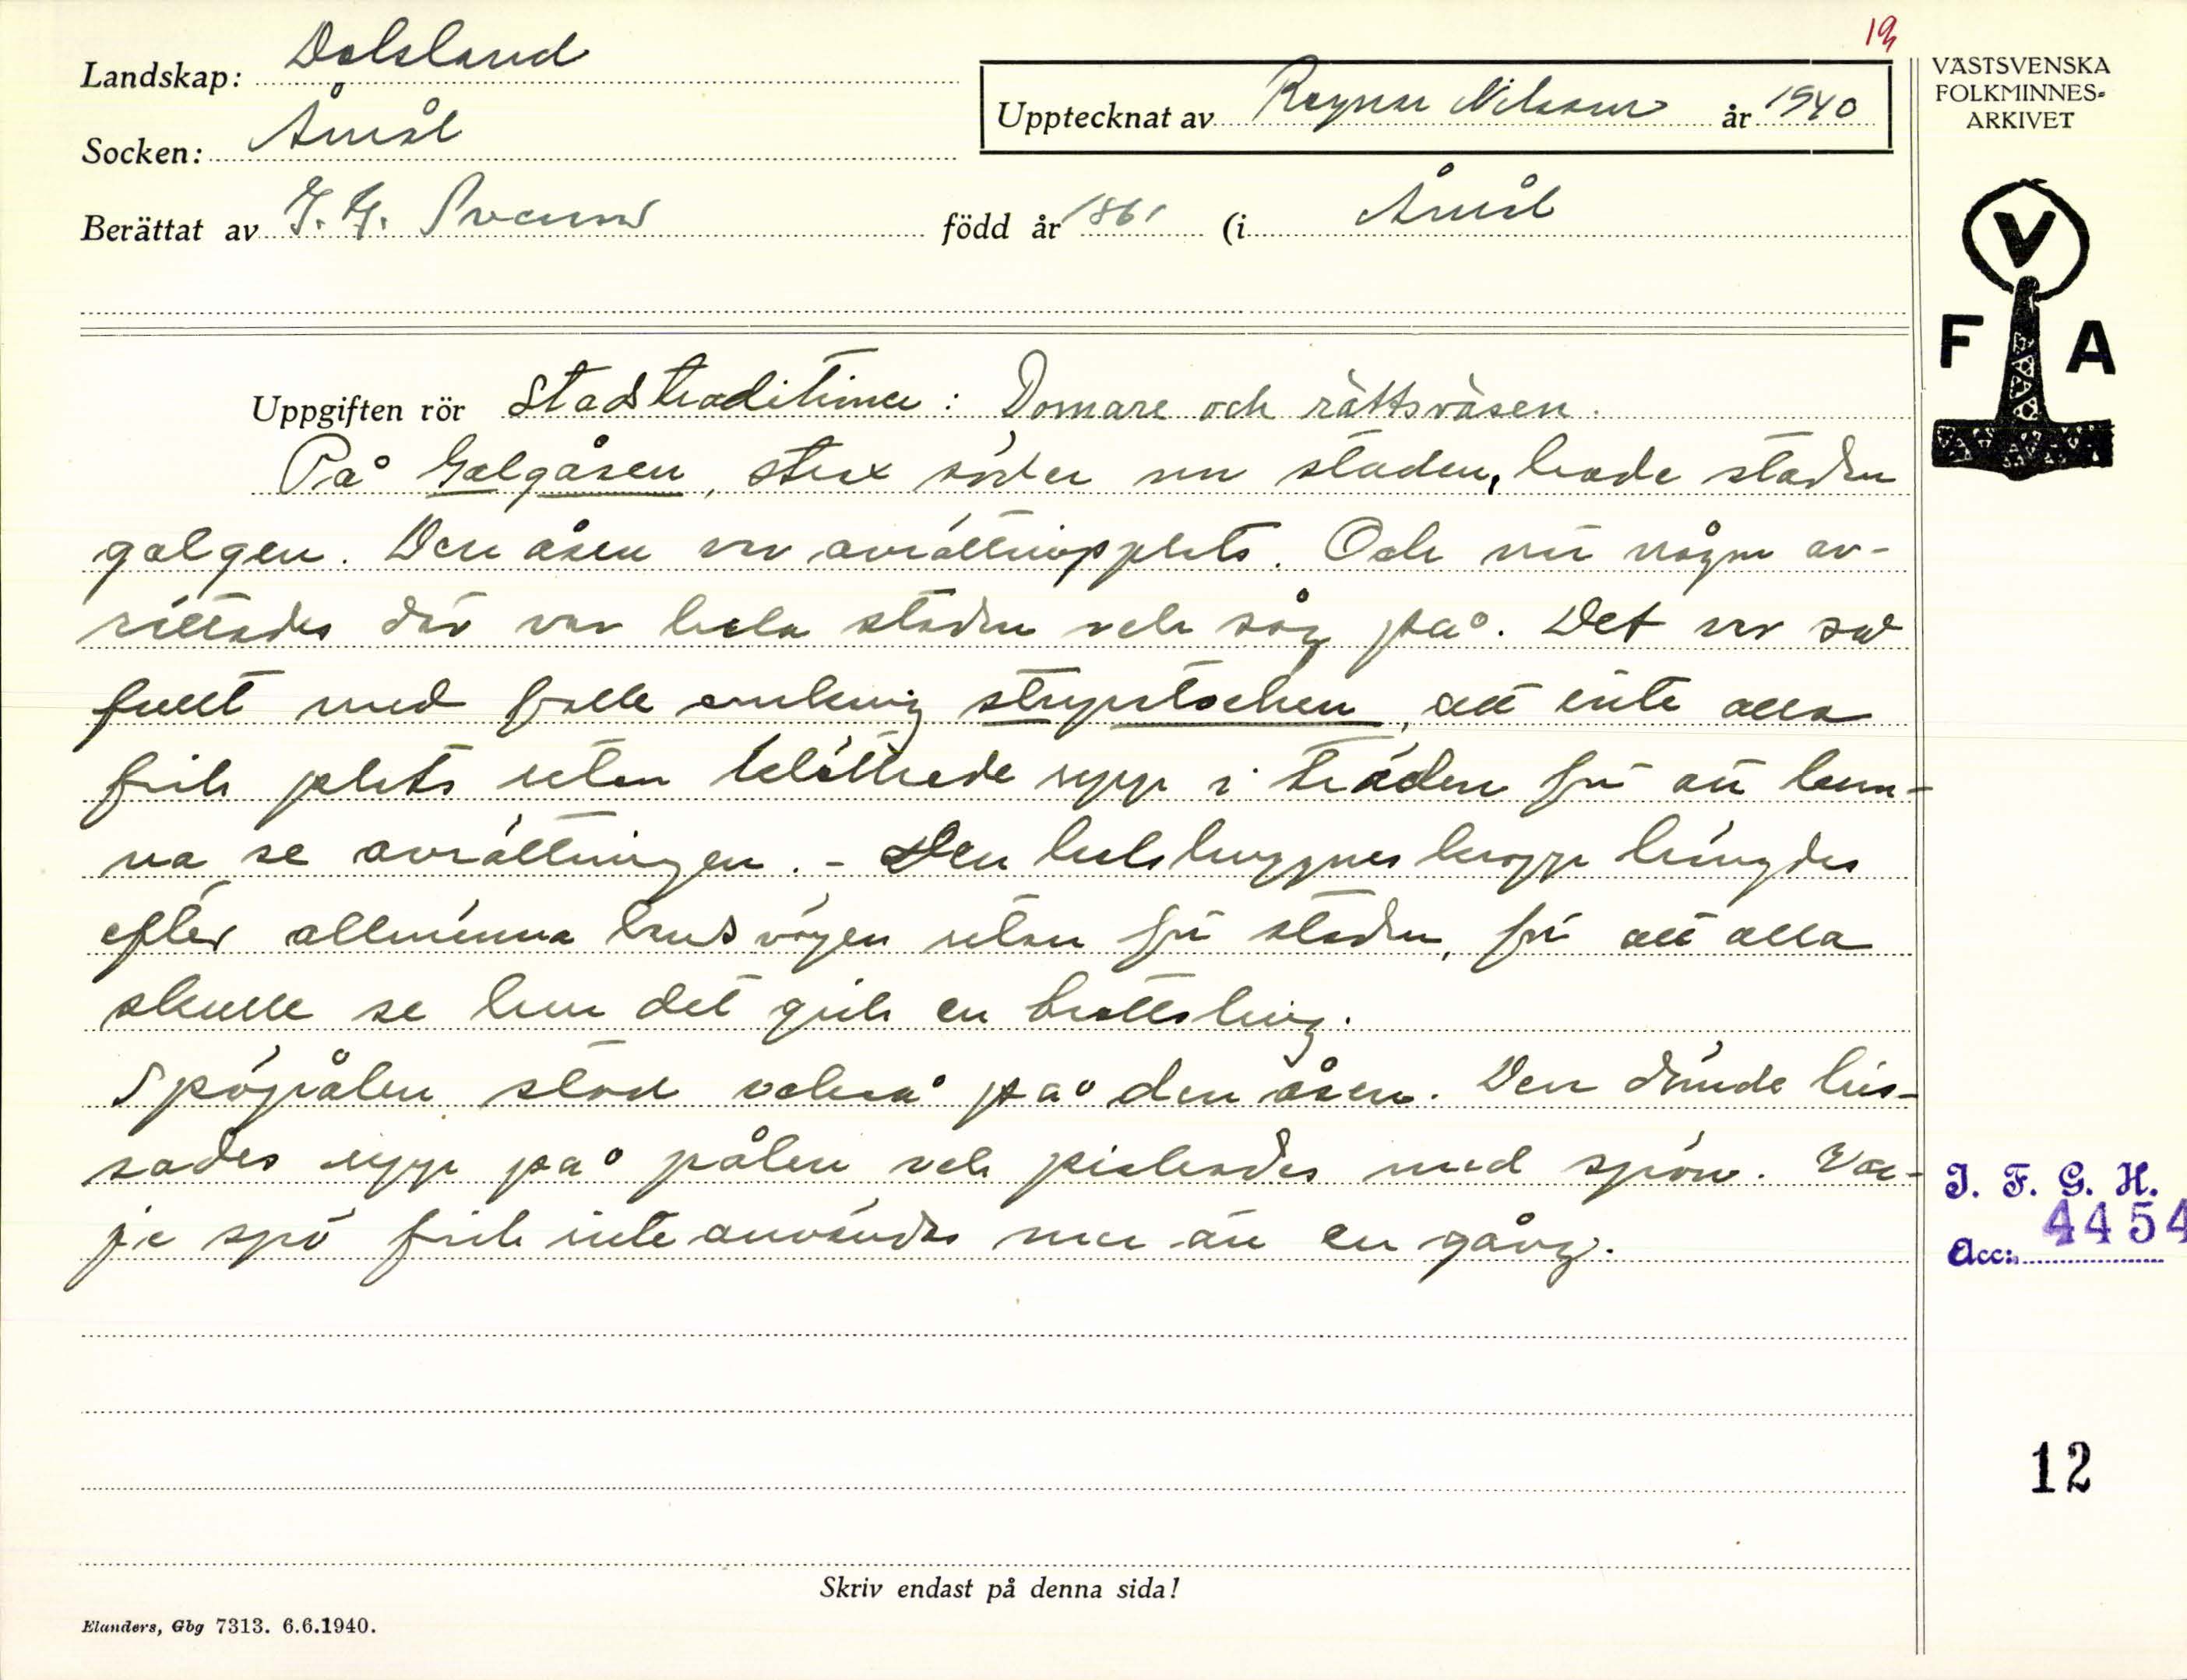 19
Landskap: Dalsland
Upptecknat av Ragnar Nilsson år 1940
VÄSTSVENSKA
FOLKMINNES-
ARKIVET
Socken: Åmål
Berättat av J. G. Svenson född år 1861 (i Åmål
V
F A
Uppgiften rör Stadstraditioner: Domare och rättsväsen.
På Galgåsen, strax söder om staden, hade staden
galgen. Den åsen var avrättningsplats. Och när någon av-
rättades där var hela staden och såg på. Det var så
fullt med folk omkring stupstocken, att inte alla
fick plats utan klättrade upp i träden för att kun-
na se avrättningen. - Den halshuggnes kropp hängdes
efter allmänna landsvägen utan för staden, för att alla
skulle se hur det gick en brottsling.
Spöpålen stod också på den åsen. Den dömde his-
sades upp på pålen och piskades med spön. Var-
je spö fick inte användas mer än en gång.
I. F. G. H.
Acc: 4454
12
Skriv endast på denna sida!
Elanders, Gbg 7313. 6.6.1940.